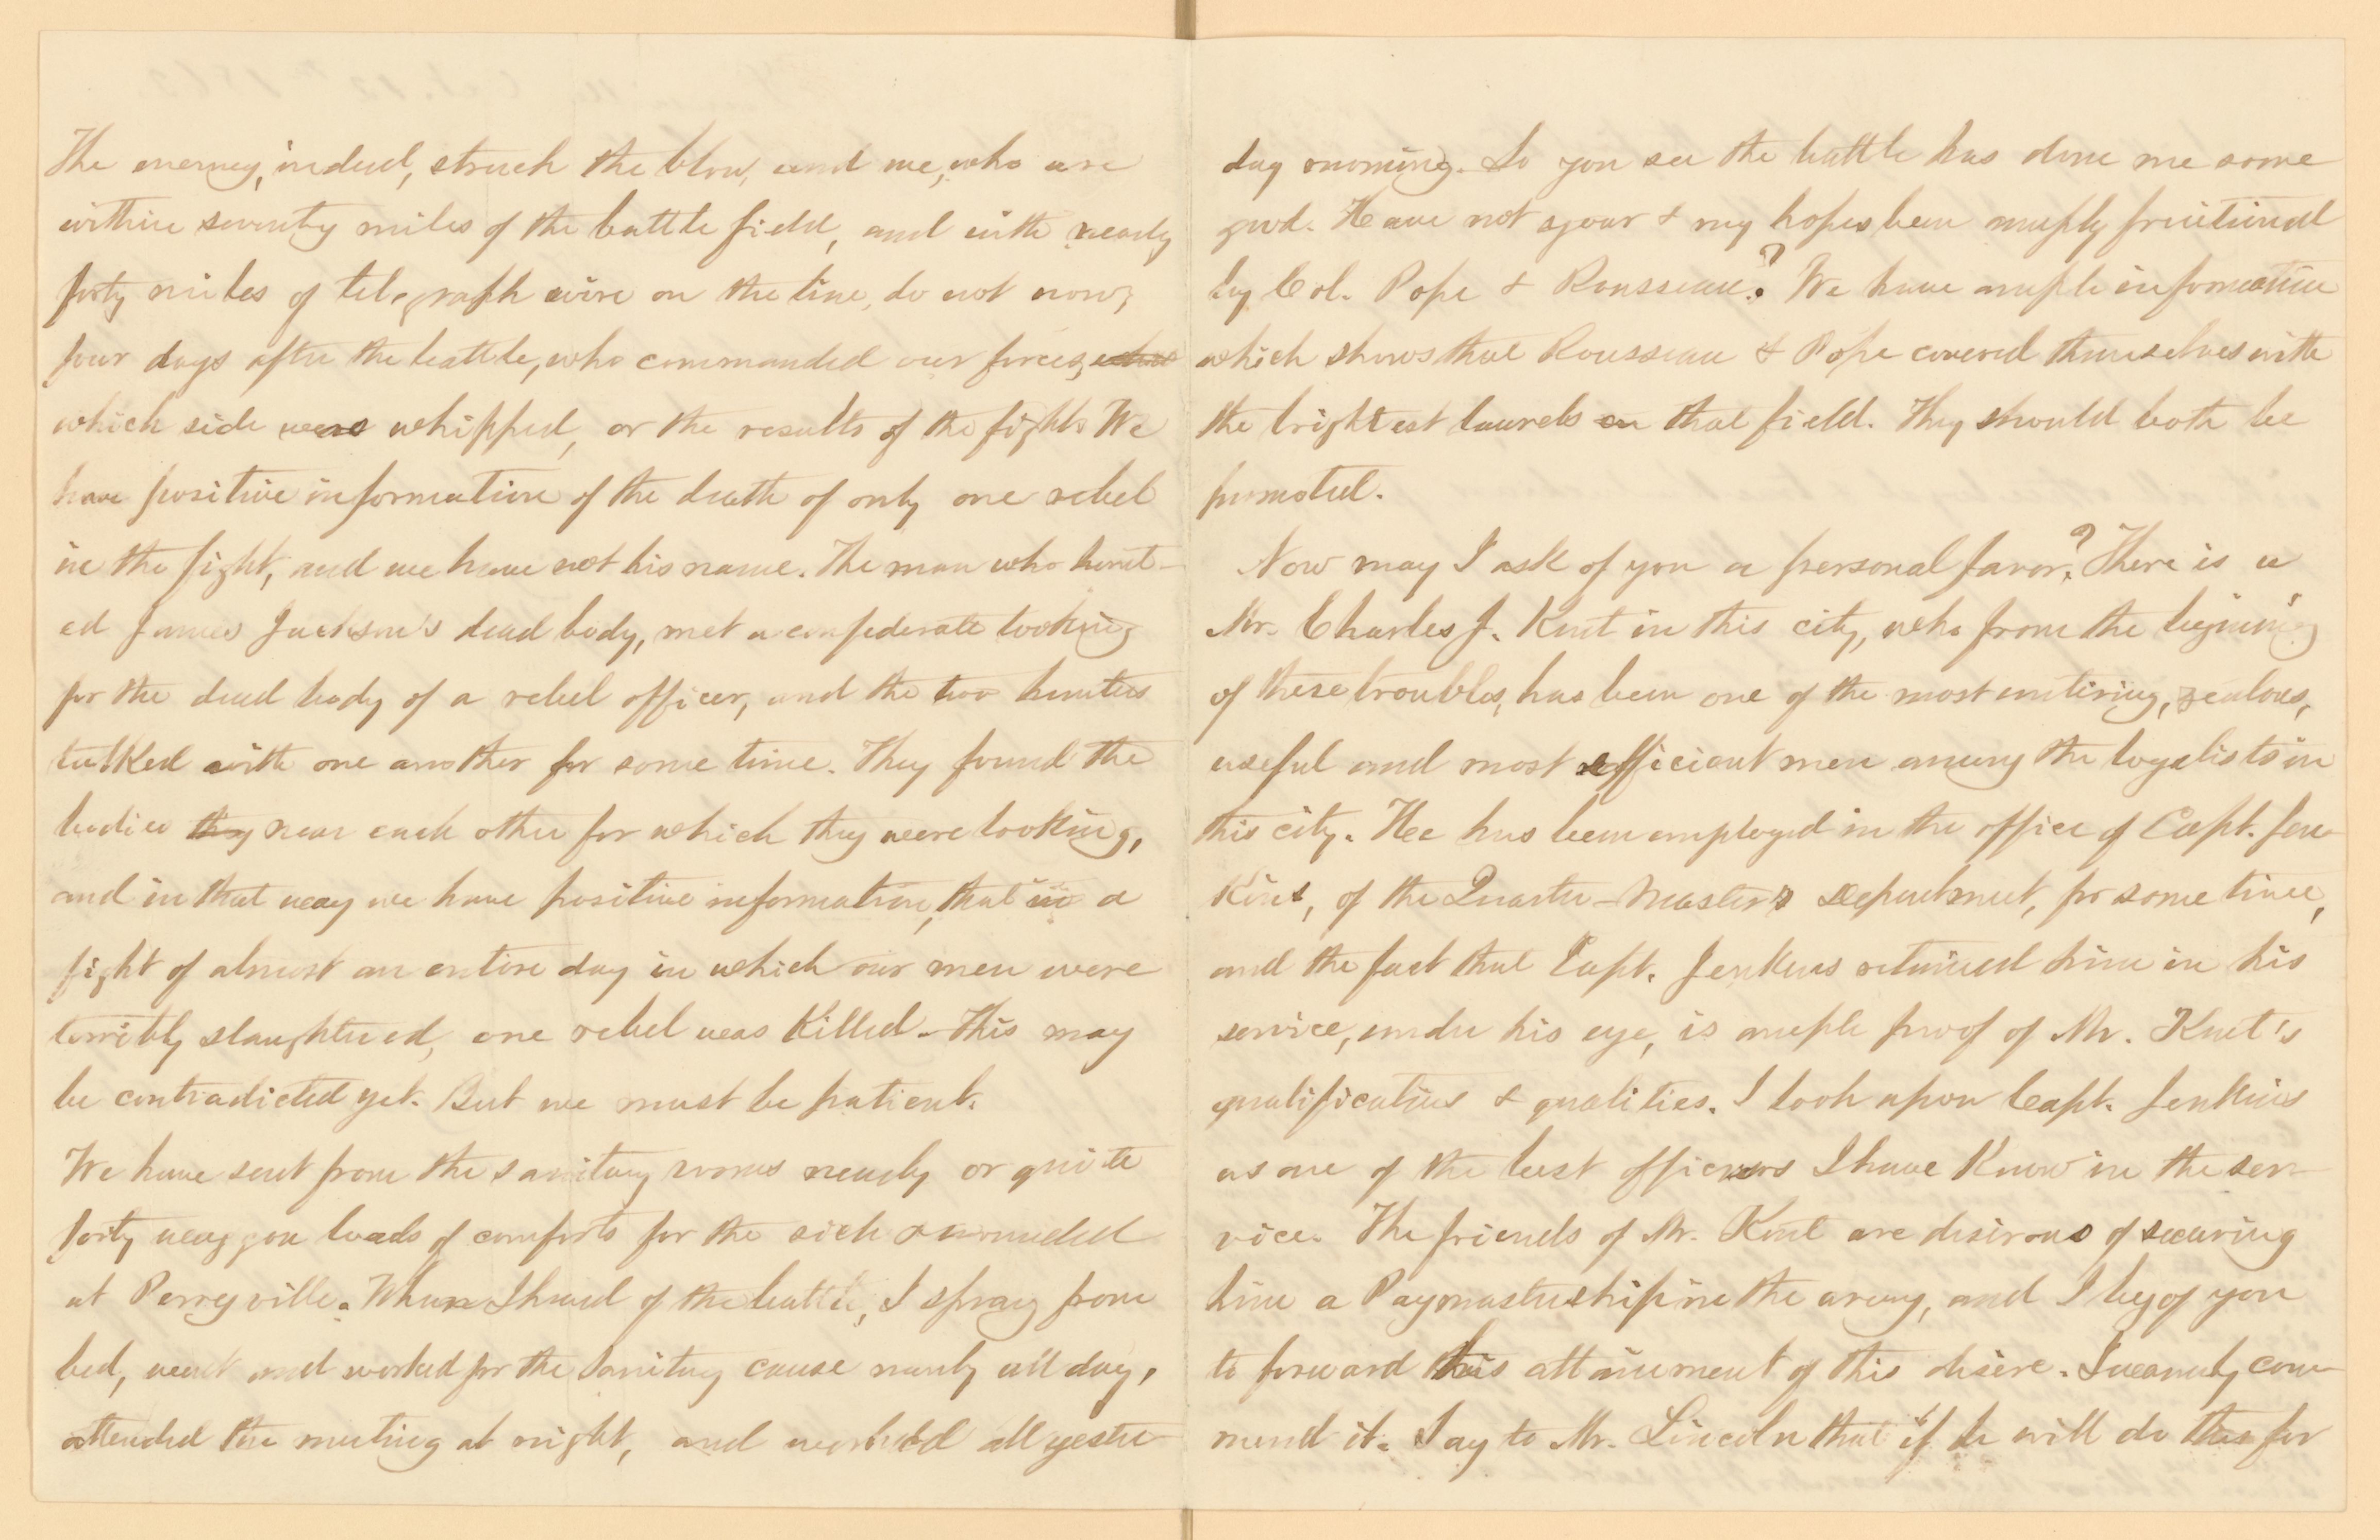 The enemy, indeed, struck the blow, and we, who are
within seventy miles of the battle field, and with nearly
forty miles of telegraph wire on the line, do not now,
four days after the battle, who commanded our forces,
which side was whipped, or the results of the fight. We
have positive information of the death of only one rebel
in the fight, and we have not his name. The man who hunt-
ed James Jackson's dead body, met a confederate looking
for the dead body of a rebel officer, and the two hunters
talked with one another for some time. They found the
bodies they near each other for which they were looking,
and in that way we have positive information, that in a
fight of almost an entire day in which our men were
terribly slaughtered, one rebel was killed - This may
be contradicted yet. But we must be patient.
We have sent from the sanitary rooms nearly or quite
forty waggon loads of comforts for the sick & wounded
at Perryville. When I heard of the battle, I sprang from
bed, weak and worked for the Sanitary cause nearly all day,
attended the meeting at night, and worked all yester-
day morning. So you see the battle has done me some
good. Have not your & my hopes been amply fruitioned
by Col. Pope & Rousseau? We have ample information
which shows that Rousseau & Pope covered themselves with
the brightest laurels on that field. They should both be
promoted.
Now may I ask of you a personal favor? There is a
Mr. Charles J. Kent in this city, who from the begining
of these troubles, has been one of the most untiring, zealous,
useful and most efficient men among the loyalists in
this city. He has been employed in the office of Capt. Jen-
kins, of the Quarter-Master's Department, for some time,
and the fact that Capt. Jenkins retained him in his
service, under his eye, is ample proof of Mr. Kent's
qualifications & qualities. I look upon Capt. Jenkins
as one of the best officers I have know in the ser-
vice. The friends of Mr. Kent are desirous of securing
him a Paymastership in the army, and I beg of you
to forward this attainment of this desire. I warmly com-
mend it. Say to Mr. Lincoln that if he will do this for